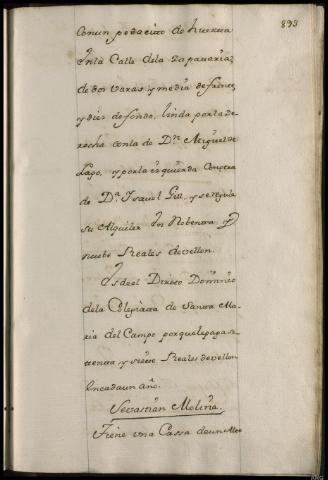 893
Con un pedacito de huerta
En la Calle dela Zapateria,
de dos varas, y media de frente,
y diez de fondo, linda por la De-
recha con la de Dn. Miguel de
Lago, y por la izquierda Con otra
de Da. Isavel Gil, y se regula
su Alquiler En Nobenta y
nuebe Reales de vellon.
Es de el Direto Dominio
dela Colegiata de Santa Ma-
ria del Campo por que le paga se-
tenta y siete Reales de vellon
En cada un año.
Sevastian Molina
Tiene una Cassa de un Alto